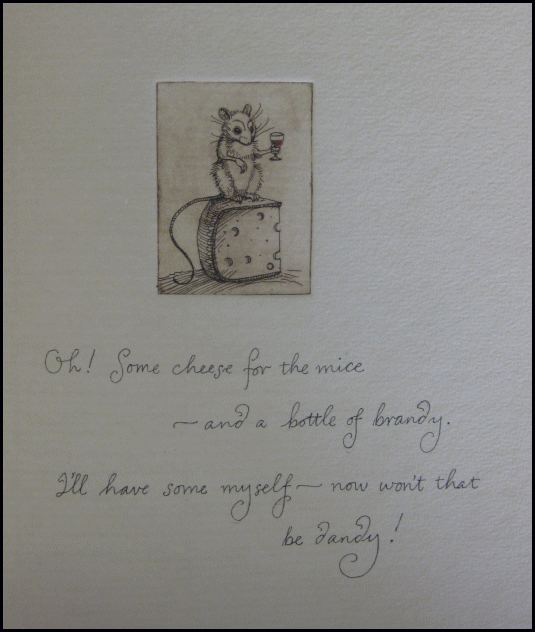 Oh! Some cheese for the mice
— and a bottle of brandy.
I'll have some myself — now won't that
be dandy!